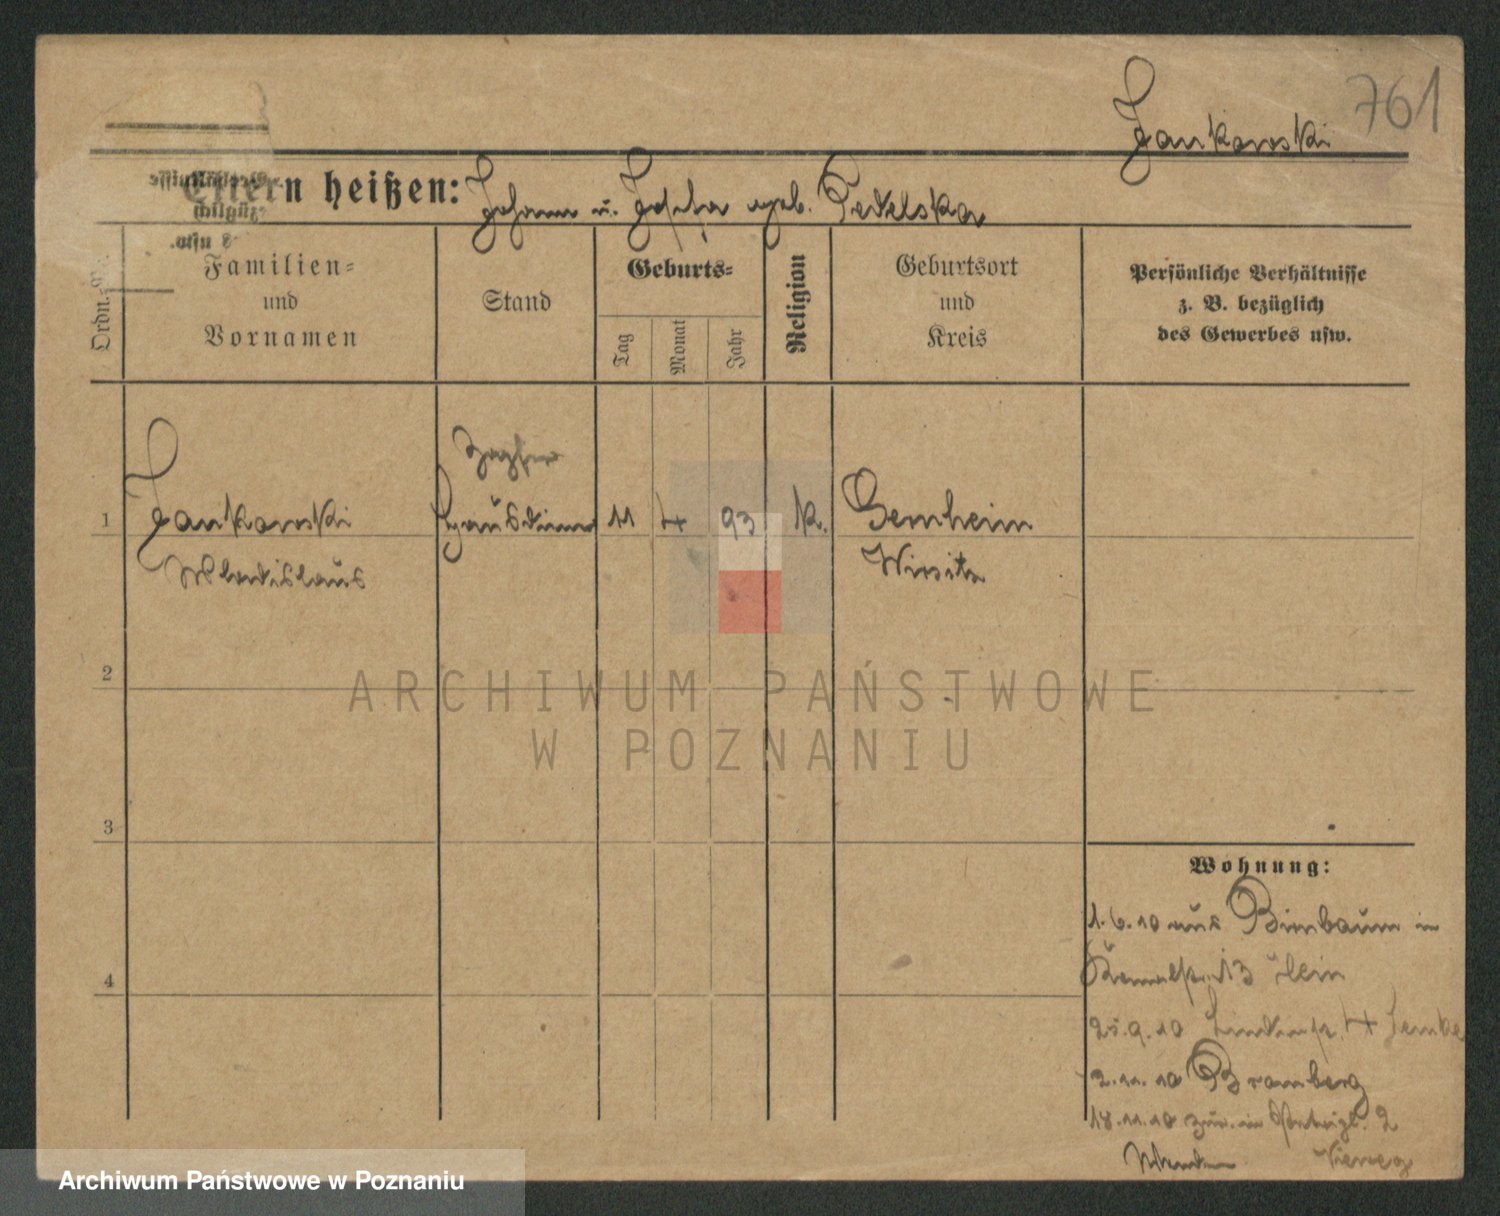 761
Jankowski
Eltern heißen: Johann u. Josefa geb. Pedelska
Ordn.
Familien-
und
Vornamen
Stand
Geburts-
Tag
Monat
Jahr
Religion
Geburtsort
und
Kreis
Persönliche Verhältnisse
z. B. bezüglich
des Gewerbes usw.
1
Jankowski
Wladislaus
Hausdiener
11
4
93
k.
Semheim
Wirsitz
2
ARCHIWUM PAŃSTWOWE
W POZNANIU
3
4
Wohnung:
1.6.10 aus Birnbaum in
13
25.9.10 Lindenstr. 4 Lemke
2.11.10 Bromberg
18.11.10 zur. in 2
Archiwum Państwowe w Poznaniu